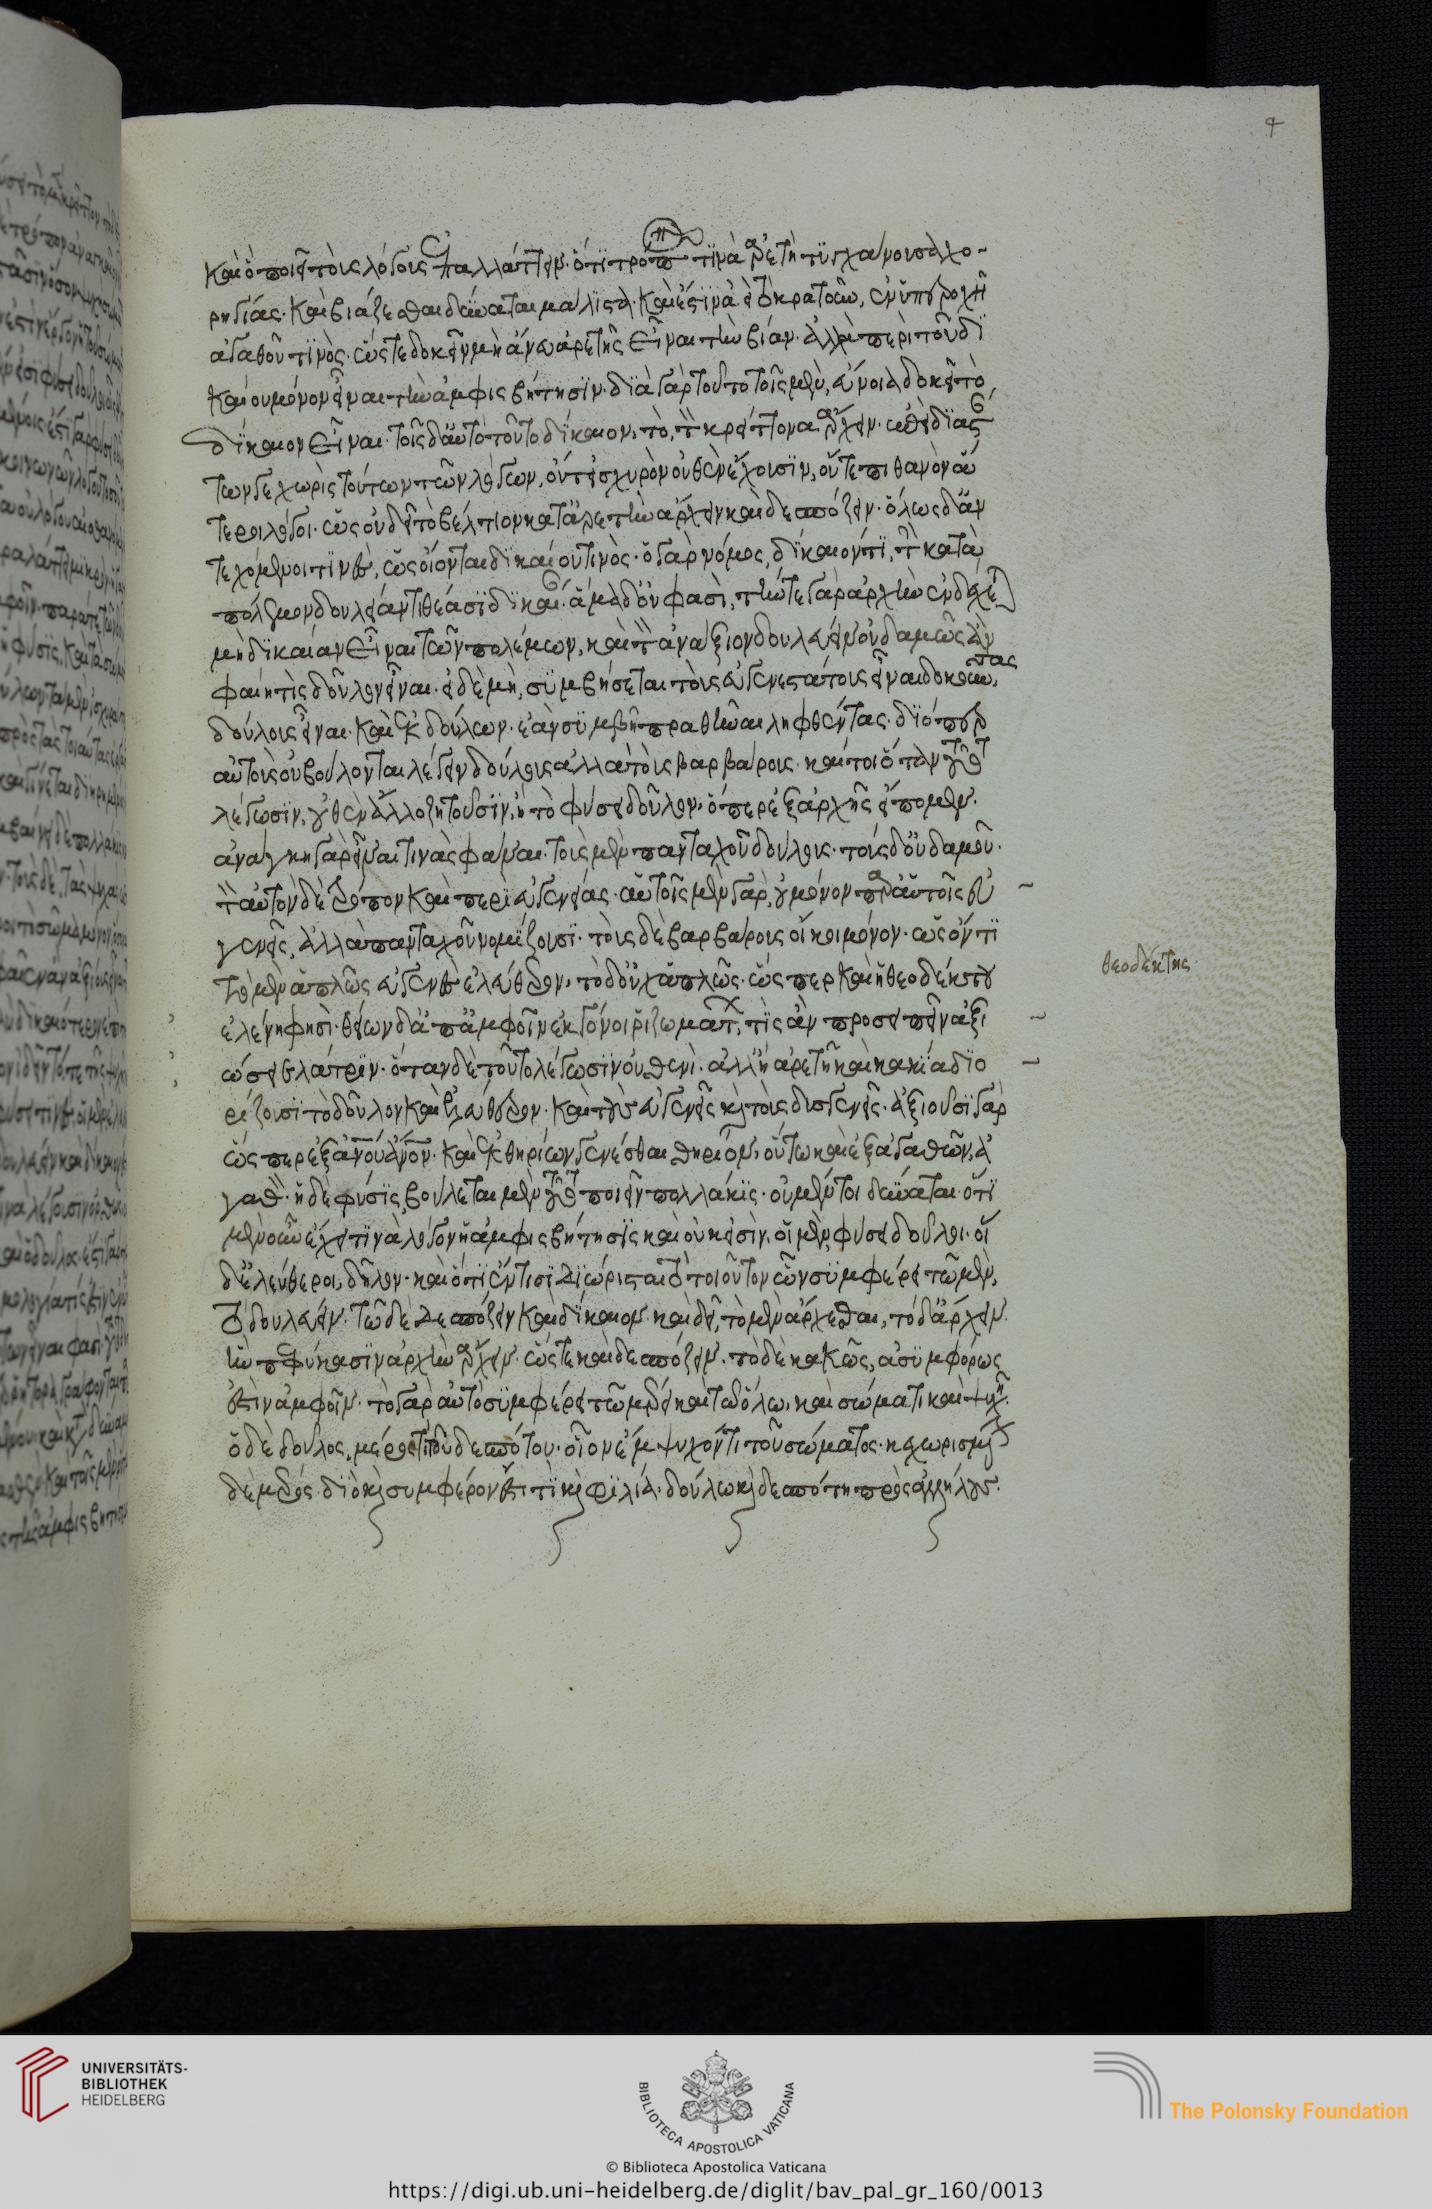 4
καὶ ὃ ποιεῖ τοὺς λόγους ἐπαλλάττειν· ὅτι τρόπον τινὰ ἀρετὴ τυγχάνουσα χο-
ρηγίας· καὶ βιάζεσθαι δύναται μάλιστα· καὶ ἔστιν ἀεὶ τὸ κρατοῦν, ἐν ὑπεροχῇ
ἀγαθοῦ τινὸς· ὥστε δοκεῖν μὴ ἄνευ ἀρετῆς εἶναι τὴν βίαν· ἀλλὰ περὶ τοῦ δι
καίου μόνον εἶναι τὴν ἀμφισβήτησιν· διὰ γὰρ τοῦτο τοῖς μὲν, εὔνοια δοκεῖ τὸ
δίκαιον εἶναι· τοῖς δ' αὐτὸ τοῦτο δίκαιον, τὸ, τὸν κρείττονα ἄρχειν·
των γε χωρὶς τούτων τῶν λόγων, οὔτ' ἰσχυρὸν οὐθὲν ἔχουσιν, οὔτε πιθανὸν ἅ
τεροι λόγοι· ὡς οὐ δεῖ τὸ βέλτιον κατ' ἀρετὴν ἄρχειν καὶ δεσπόζειν· ὅλως δ' ἀν
τεχόμενοι τινὲς, ὡς οἴονται δικαίου τινὸς· ὁ γὰρ νόμος, δίκαιόν τι, τὴν κατὰ
πόλεμον δουλείαν τιθέασι δικαίαν· ἅμα δ' οὔ φασὶ, τήν τε γὰρ ἀρχὴν ἐνδέχεται
μὴ δικαίαν εἶναι τῶν πολέμων, καὶ τὸν ἀνάξιον δουλεύειν οὐδαμῶς ἂν
φαίη τὶς δοῦλον εἶναι· εἰ δὲ μὴ, συμβήσεται τοὺς εὐγενεστάτους εἶναι δοκοῦντας
δούλους εἶναι· καὶ ἐκ δούλων· ἐὰν συμβῇ πραθῆναι ληφθέντας· διόπερ
αὐτοὺς οὐ βούλονται λέγειν δούλους ἀλλὰ τοὺς βαρβάρους· καίτοι ὅταν τοῦτο
λέγωσιν, οὐθὲν ἄλλο ζητοῦσιν, ἢ τὸ φύσει δοῦλον· ὅπερ ἐξ ἀρχῆς εἴπομεν·
ἀνάγκη γὰρ εἶναι τινὰς φάναι· τοὺς μὲν πανταχοῦ δούλους· τοὺς δ' οὐδαμοῦ·
τὸν αὐτὸν δὲ τρόπον καὶ περὶ εὐγενείας· αὑτοὺς μὲν γὰρ, οὐ μόνον παρ' αὑτοῖς εὐ
γενεῖς, ἀλλὰ πανταχοῦ νομίζουσι· τοὺς δὲ βαρβάρους οἴκοι μόνον· ὡς ὄν τι
τὸ μὲν ἁπλῶς εὐγενὲς ἐλεύθερον, τὸ δ' οὐχ ἁπλῶς· ὥσπερ καὶ ἡ θεοδέκτου
θεοδέκτης
ἑλένη φησὶ· θείων δ' ἀπ' ἀμφοῖν ἔκγονοι ῥιζωμάτων, τίς ἂν προσειπεῖν ἀξι
ώσει λάτριν· ὅταν δὲ τοῦτο λέγωσιν οὐθενὶ· ἀλλ' ἢ ἀρετῆ καὶ κακία διο
ρίζουσι τὸ δοῦλον καὶ ἐλεύθερον· καὶ τοὺς εὐγενεῖς καὶ τοὺς δυσγενεῖς· ἀξιοῦσι γὰρ
ὥσπερ ἐξ ἀνου ἀνον· καὶ ἐκ θηρίων γενέσθαι θηρίον, οὕτω καὶ ἐξ ἀγαθῶν, ἀ
γαθὸν· ἡ δὲ φύσις, βούλεται μὲν τοῦτο ποιεῖν πολλάκις· οὐ μέντοι δύναται· ὅτι
μὲν οὖν ἔχει τινὰ λόγον ἡ ἀμφισβήτησις καὶ οὐκ εἰσὶν, οἱ μὲν φύσει δοῦλοι· οἱ
δ' ἐλεύθεροι, δῆλον· καὶ ὅτι ἔν τισι διώρισται τὸ τοιοῦτον ὧν συμφέρει τῶ μὲν,
τὸ δουλεύειν· τῶ δὲ δεσπόζειν καὶ δίκαιον· καὶ δεῖ, τὸ μὲν ἄρχεσθαι, τὸ δ' ἄρχειν·
ἣν πεφύκασιν ἀρχὴν ἄρχειν· ὥστε καὶ δεσπόζειν· τὸ δὲ κακῶς, ἀσυμφόρως
ἐστὶν ἀμφοῖν· τὸ γὰρ αὐτὸ συμφέρει τῶ μέρει καὶ τῶ ὅλω, καὶ σώματι καὶ ψυχῇ·
ὁ δὲ δοῦλος, μέρος τι τοῦ δεσπότου· οἷον ἔμψυχόν τι τοῦ σώματος· κεχωρισμένον
δὲ μέρος· διὸ καὶ συμφέρον ἐστί τι καὶ φιλία· δούλω καὶ δεσπότη πρὸς ἀλλήλους·
UNIVERSITÄTS-
BIBLIOTHEK
HEIDELBERG
BIBLIOTECA APOSTOLICA VATICANA
The Polonsky Foundation
© Biblioteca Apostolica Vaticana
https://digi.ub.uni-heidelberg.de/diglit/bav_pal_gr_160/0013